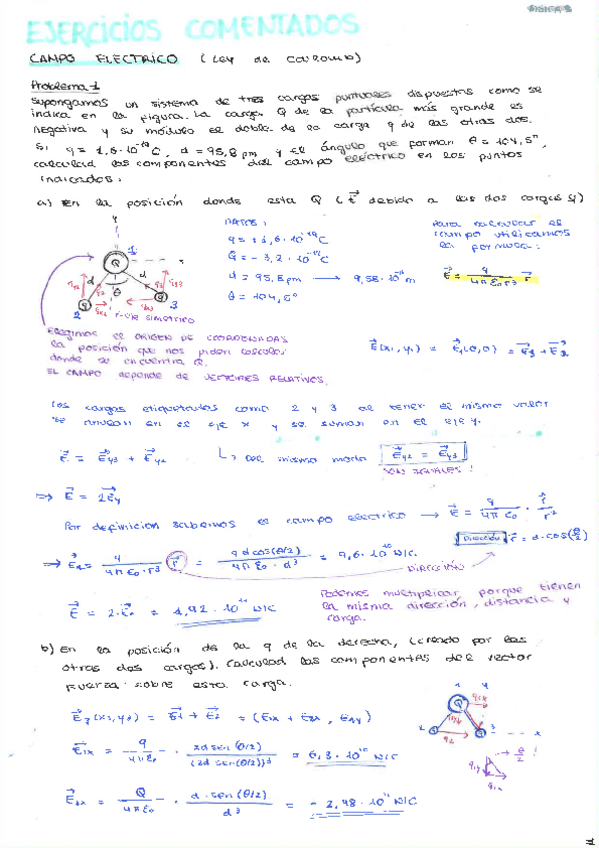 EJERCICIOS COMENTADOS
CAMPO ELECTRICO (Ley de Coulomb)
Problema 1
Supongamos un sistema de tres cargas puntuales dispuestas como se
indica en la figura. La carga Q de la partícula más grande es
negativa y su módulo es doble de la carga q de las otras dos.
Si q = 1,6·10⁻¹⁹ C, d = 95,8 pm y el ángulo que forman θ = 104,5º,
calculad las componentes del campo eléctrico en los puntos
indicados:
a) En la posición donde esta Q (E⃗ debido a las dos cargas q)
DATOS:
q = 1,6·10⁻¹⁹ C
Q = -3,2·10⁻¹⁹ C
d = 95,8 pm → 9,58·10⁻¹¹ m
θ = 104,5º
Para calcular el
campo utilizamos
la formula:
E⃗ = q / 4πε₀r³ r⃗
y
1
Q
d
d
θ
q
q
2
3
simetrico
ELEGIMOS EL ORIGEN DE COORDENADAS
la posición que nos piden calcular
donde se encuentra Q.
EL CAMPO DEPENDE DE VECTORES RELATIVOS.
E(x₁, y₁) = E₁(0,0) = E⃗₃ + E⃗₂
Las cargas etiquetadas como 2 y 3 al tener el mismo valor
se anulan en el eje x y se suman en el eje y.
E⃗ = E⃗y3 + E⃗y2
Del mismo modo E⃗y2 = E⃗y3
SON IGUALES!
⇒ E⃗ = 2E⃗y
Por definicion sabemos el campo electrico → E⃗ = q / 4πε₀ · r̂ / r²
Direccion r⃗ = d·cos(θ/2)
= q / 4πε₀·r³ r⃗ = q d cos(θ/2) / 4πε₀·d³ = 9,6·10¹⁰ N/C.
DIRECCIÓN
Podemos multiplicar porque tienen
la misma dirección, distancia y
carga.
= 1,92·10¹¹ N/C
b) En la posición de la q de la derecha, (creado por las
otras dos cargas). Calculad las componentes del vector
fuerza sobre esta carga.
E⃗₃(x₃, y₃) = E⃗₁ + E⃗₂ = (E₁ₓ + E₂ₓ, E₁y)
= q / 4πε₀ · 2d sen(θ/2) / (2d sen(θ/2))³ = 6,3·10¹⁰ N/C
= Q / 4πε₀ · d·sen(θ/2) / d³ = -2,48·10¹¹ N/C
Q
2
3
x
θ/2 !